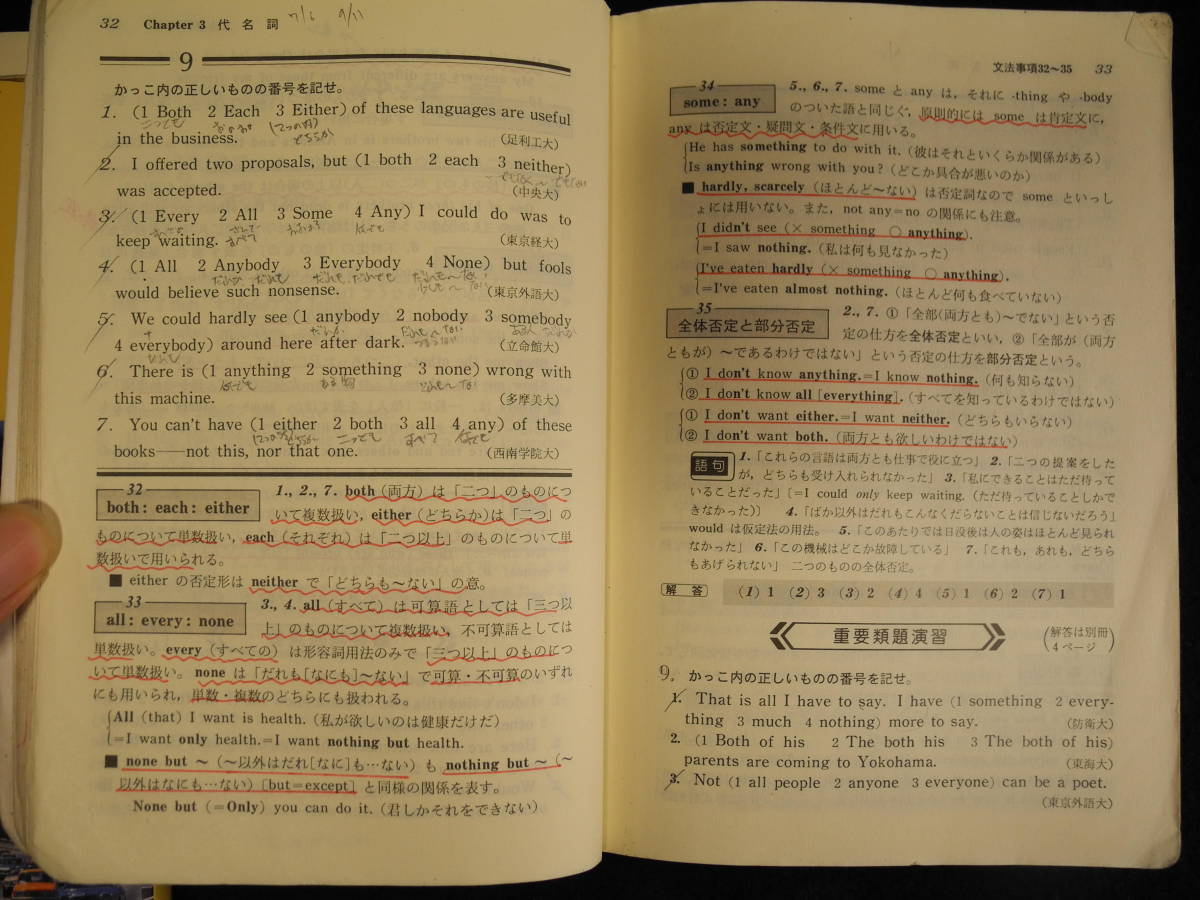 32 Chapter 3 代名詞 7/6 9/11
9
かっこ内の正しいものの番号を記せ。
1. (1 Both 2 Each 3 Either) of these languages are useful
in the business. (足利工大)
2. I offered two proposals, but (1 both 2 each 3 neither)
was accepted. (中央大)
3. (1 Every 2 All 3 Some 4 Any) I could do was to
keep waiting. (東京経大)
4. (1 All 2 Anybody 3 Everybody 4 None) but fools
would believe such nonsense. (東京外語大)
5. We could hardly see (1 anybody 2 nobody 3 somebody
4 everybody) around here after dark. (立命館大)
6. There is (1 anything 2 something 3 none) wrong with
this machine. (多摩美大)
7. You can't have (1 either 2 both 3 all 4 any) of these
books——not this, nor that one. (西南学院大)
32
both : each : either
1., 2., 7. both (両方) は「二つ」のものにつ
いて複数扱い, either (どちらか)は「二つ」の
ものについて単数扱い, each (それぞれ) は「二つ以上」のものについて単
数扱いで用いられる。
■ either の否定形は neither で「どちらも～ない」の意。
33
all : every : none
3., 4. all (すべて) は可算語としては「三つ以
上」のものについて複数扱い, 不可算語としては
単数扱い。every (すべての) は形容詞用法のみで「三つ以上」のものにつ
いて単数扱い。none は「だれも[なにも]～ない」で可算・不可算のいずれ
にも用いられ, 単数・複数のどちらにも扱われる。
All (that) I want is health. (私が欲しいのは健康だけだ)
=I want only health.=I want nothing but health.
■ none but ～ (～以外はだれ[なに]も…ない) も nothing but ～ (～
以外はなにも…ない) [but=except] と同様の関係を表す。
None but (=Only) you can do it. (君しかそれをできない)
文法事項32～35 33
34
some : any
5., 6., 7. some と any は, それに -thing や -body
のついた語と同じく, 原則的には some は肯定文に,
any は否定文・疑問文・条件文に用いる。
He has something to do with it. (彼はそれといくらか関係がある)
Is anything wrong with you? (どこか具合が悪いのか)
■ hardly, scarcely (ほとんど～ない) は否定詞なので some といっし
ょには用いない。また, not any=no の関係にも注意。
I didn't see (× something ○ anything).
=I saw nothing. (私は何も見なかった)
I've eaten hardly (× something ○ anything).
=I've eaten almost nothing. (ほとんど何も食べていない)
35
全体否定と部分否定
2., 7. ①「全部(両方とも)～でない」という否
定の仕方を全体否定といい, ②「全部が (両方
ともが) ～であるわけではない」という否定の仕方を部分否定という。
① I don't know anything.=I know nothing. (何も知らない)
② I don't know all [everything]. (すべてを知っているわけではない)
① I don't want either.=I want neither. (どちらもいらない)
② I don't want both. (両方とも欲しいわけではない)
語句 1.「これらの言語は両方とも仕事で役に立つ」 2.「二つの提案をした
が, どちらも受け入れられなかった」 3.「私にできることはただ待って
いることだった」[=I could only keep waiting. (ただ待っていることしかで
きなかった)] 4.「ばか以外はだれもこんなくだらないことは信じないだろう」
would は仮定法の用法。 5.「このあたりでは日没後は人の姿はほとんど見られ
なかった」 6.「この機械はどこか故障している」 7.「これも, あれも, どちら
もあげられない」 二つのものの全体否定。
解答 (1) 1 (2) 3 (3) 2 (4) 4 (5) 1 (6) 2 (7) 1
重要類題演習 (解答は別冊 4ページ)
9. かっこ内の正しいものの番号を記せ。
1. That is all I have to say. I have (1 something 2 every-
thing 3 much 4 nothing) more to say. (防衛大)
2. (1 Both of his 2 The both his 3 The both of his)
parents are coming to Yokohama. (東海大)
3. Not (1 all people 2 anyone 3 everyone) can be a poet.
(東京外語大)